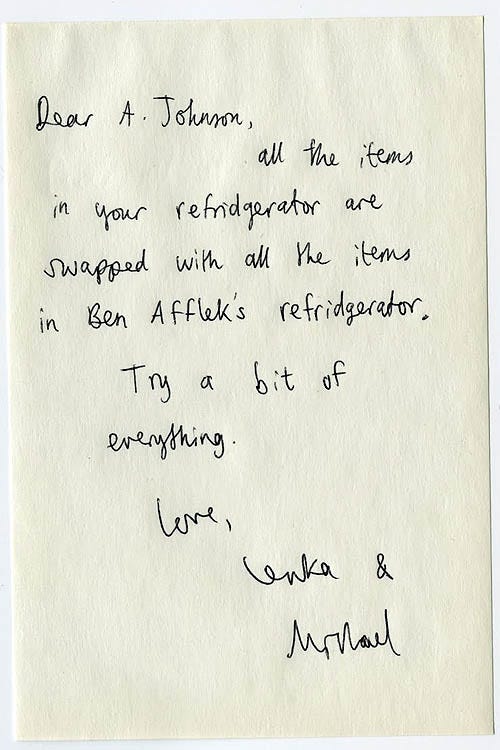 Dear A. Johnson,
all the items
in your refridgerator are
swapped with all the items
in Ben Afflek's refridgerator.
Try a bit of
everything.
Love,
Lenka &
Michael